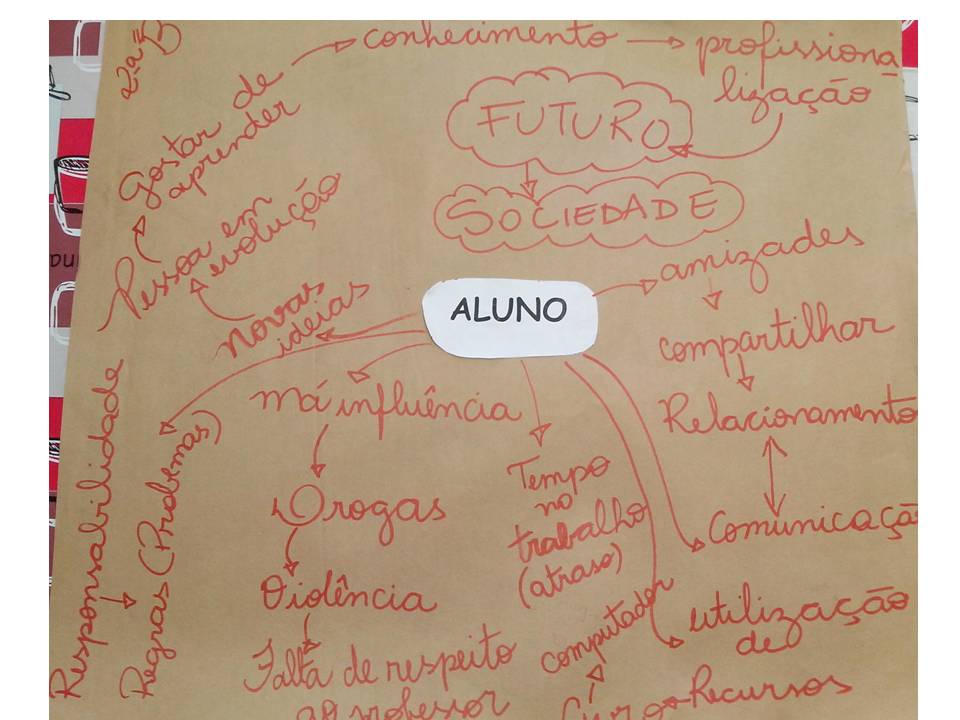 2ª
conhecimento
profissiona
lização
Gostar de
aprender
FUTURO
SOCIEDADE
Pessoa em
evolução
amizades
Novas
ideias
ALUNO
compartilhar
má influência
Relacionamento
Responsabilidade
Regras (Problemas)
Drogas
Tempo
no
trabalho
(atraso)
Comunicaçã
Violência
computador
utilização
de
Recursos
Falta de respeito
ao professor